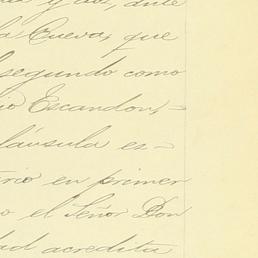 y dos, ante
la Cueva, que
segundo como
io Escandon,=
láusula es-
ario en primer
o el Señor Don
dad acredita